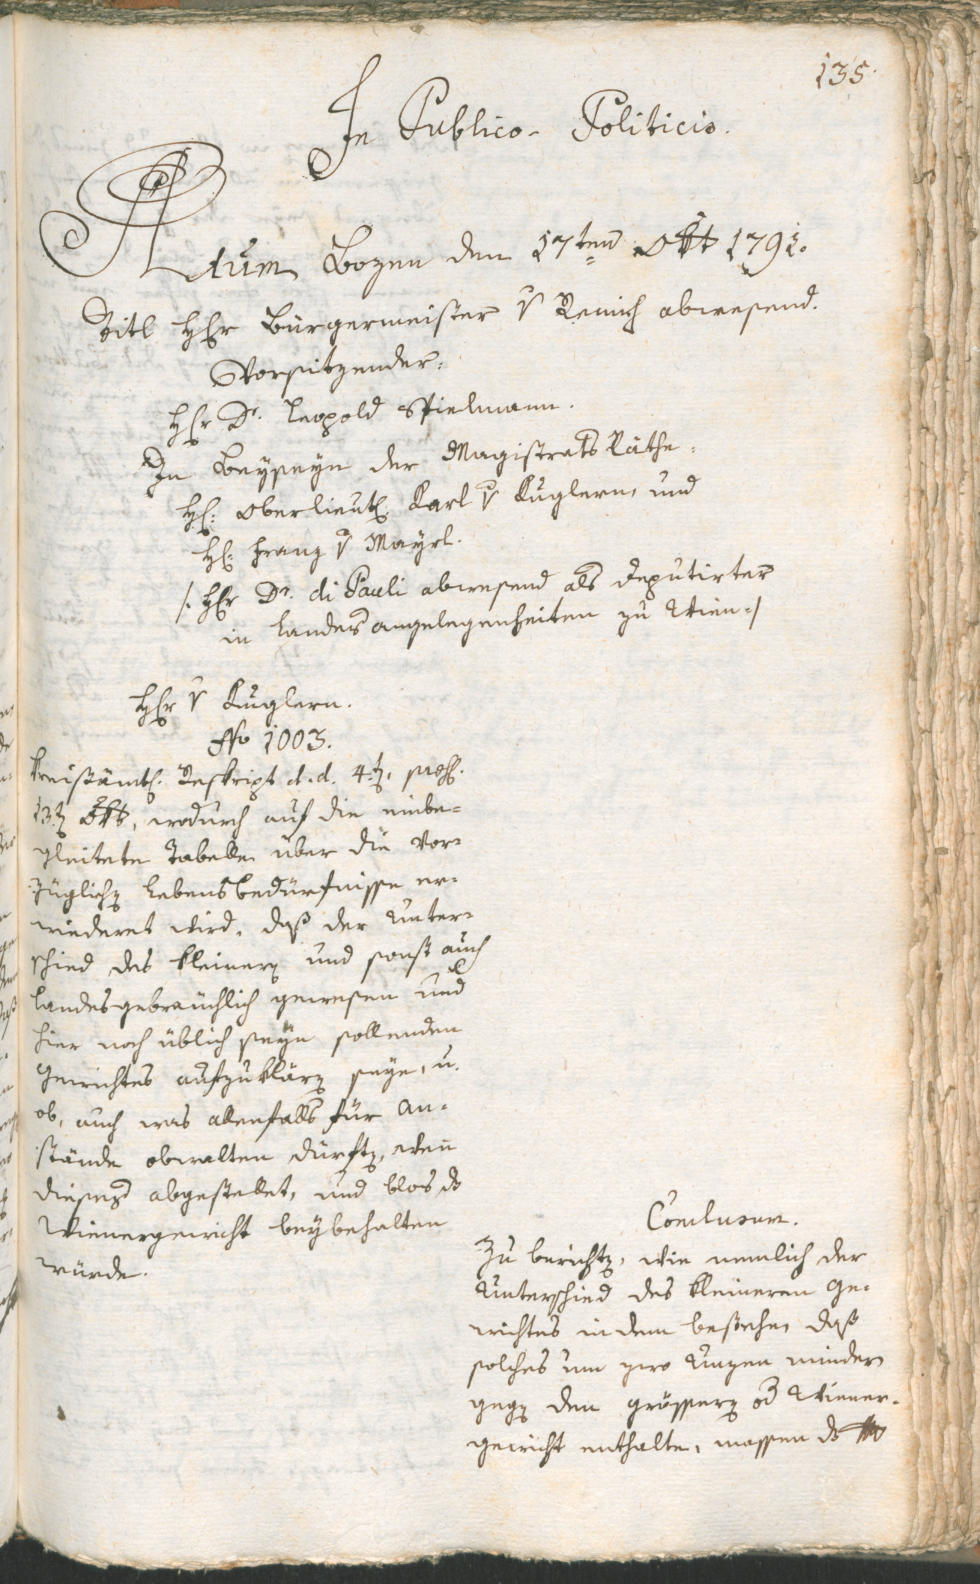 135.
In Publico-Politicis.
Actum Bozen den 17ten Okt 1791.
Titl HEr Bürgermeister v Remich abwesend.
Vorsitzender.
HEr Dr. Leopold Spielmann.
In Beyseyn der Magistrats Räthe.
H: Oberlieut: Karl v Kuglern, und
H: Franz v Mayrl.
/. HEr Dr. di Pauli abwesend als Deputirter
in Landesangelegenheiten zu Wien ./
HEr v Kuglern.
No 1003.
Kreisämtl. Reskript d.d. 4t, pres.
13t Okt, wodurch auf die einbe-
gleitete Tabelle über die vor-
züglich Lebensbedürfnisse er-
wiedert wird, daß der Unter-
schied des kleinern und sonst auch
landesgebräuchlich gewesen und
hier noch üblich seyn sollenden
Gewichtes aufzuklären seye, u.
ob, auch was allenfalls für An-
stände obwalten dürften, wenn
dieses abgestellet, und blos ds
Wienergewicht beybehalten
würde.
Conclusum.
Zu berichten, wie nemlich der
Unterschied des kleineren Ge-
wichtes in dem bestehe, daß
solches um zwo Unzen minder
gegen den grössern od Wiener-
gewicht enthalte, massen ds